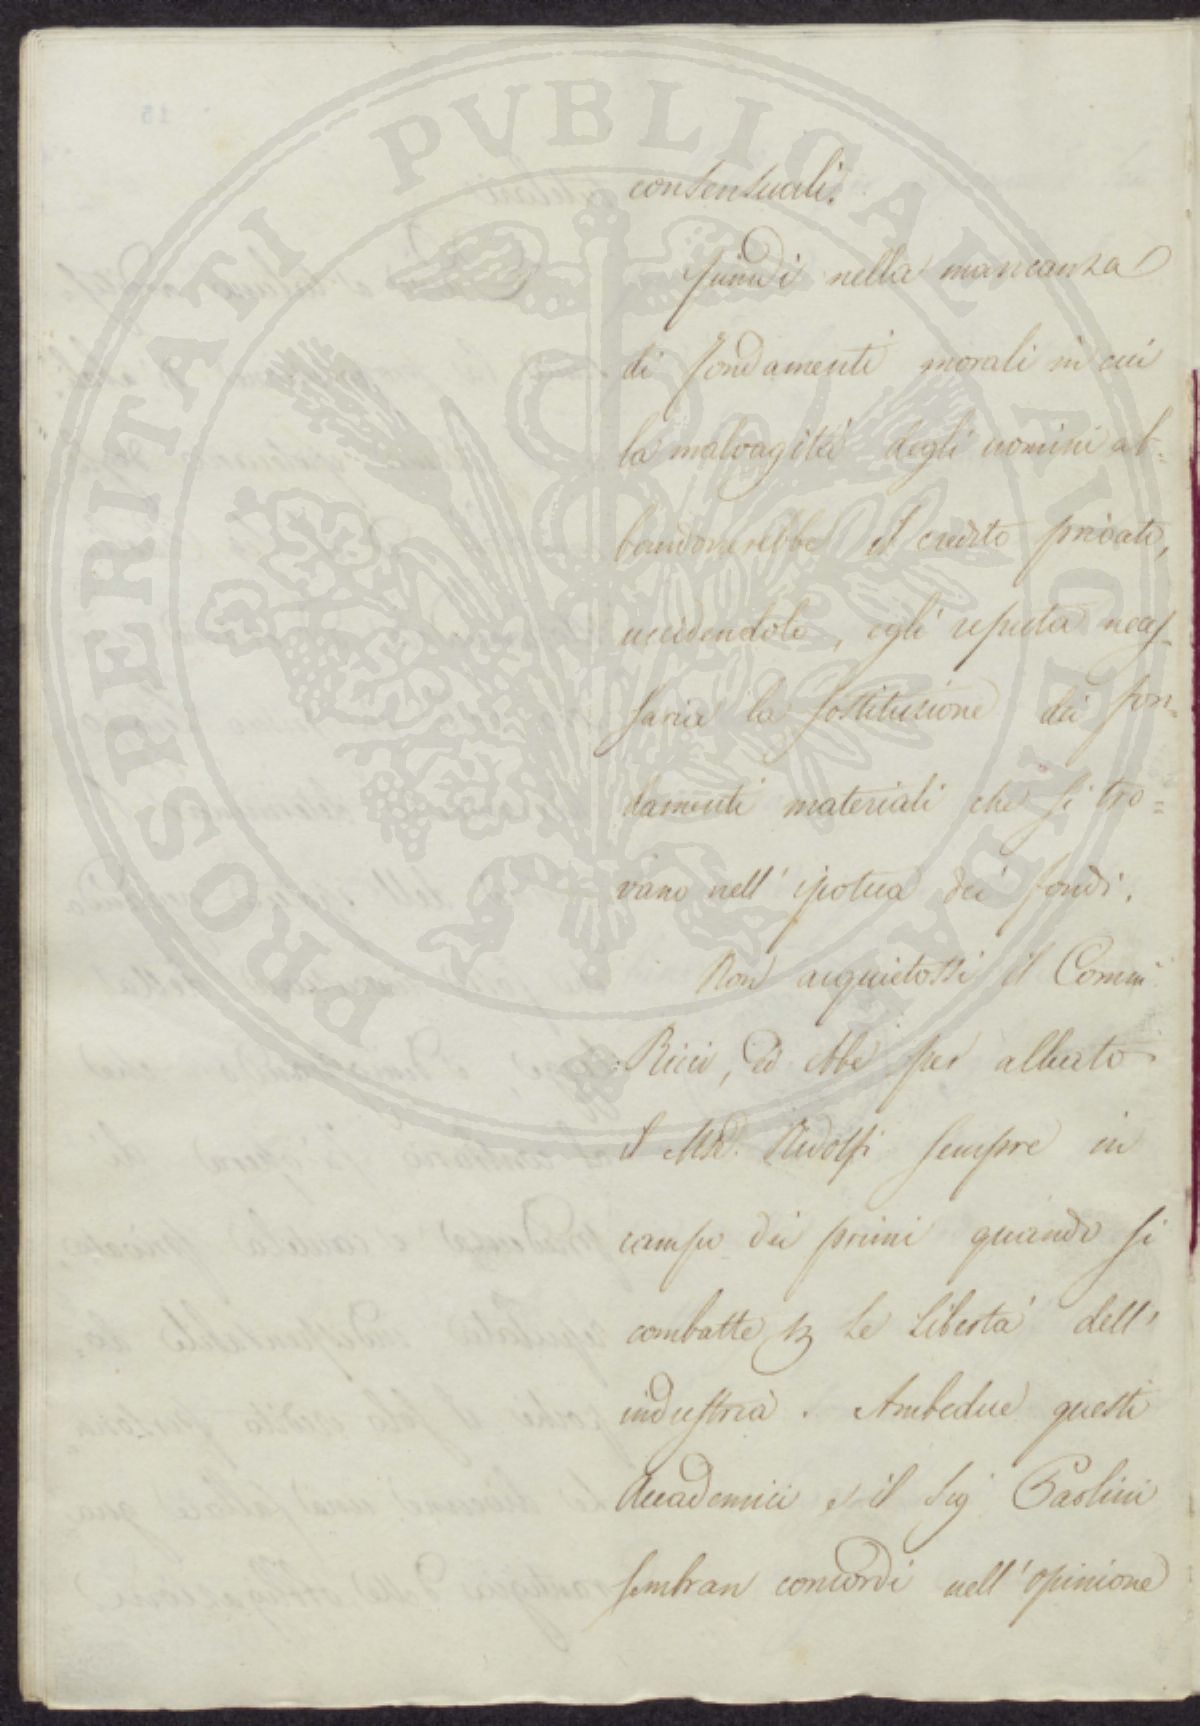 consensuali.
Quindi nella mancanza
di fondamenti morali in cui
la malvagità degli uomini ab=
bandonerebbe il credito privato,
uccidendolo, egli reputa neces
saria la sostituzione dei fon=
damenti materiali che si tro=
vano nell' ipoteca dei fondi.
Non acquietossi il Comm
Ricci, ed ebbe per alleato
il Mse. Ridolfi sempre in
campo dei primi quando si
combatte p le libertà dell'
industria. Ambedue questi
Accademici e il Sig Paolini
sembran concordi nell' opinione
PROSPERITATI PVBLICAE AVGENDAE